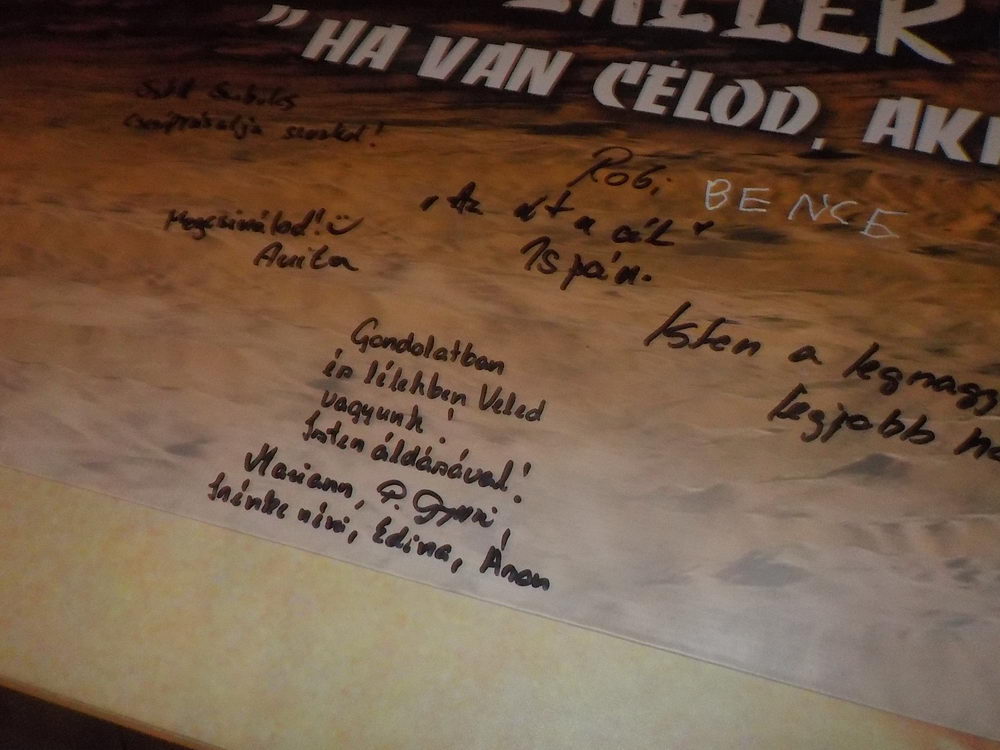 "HA VAN CÉLOD, AK
csapatásalja
Robi
BENCE
"Az út a cél"
Ispán.
Megcsinálod!
Anita
Isten a legnagy
legjobb
Gondolatban
és lélekben Veled
vagyunk!
Isten áldásával!
Mariann, P. Gyuri,
Irénke néni, Edina, Áron